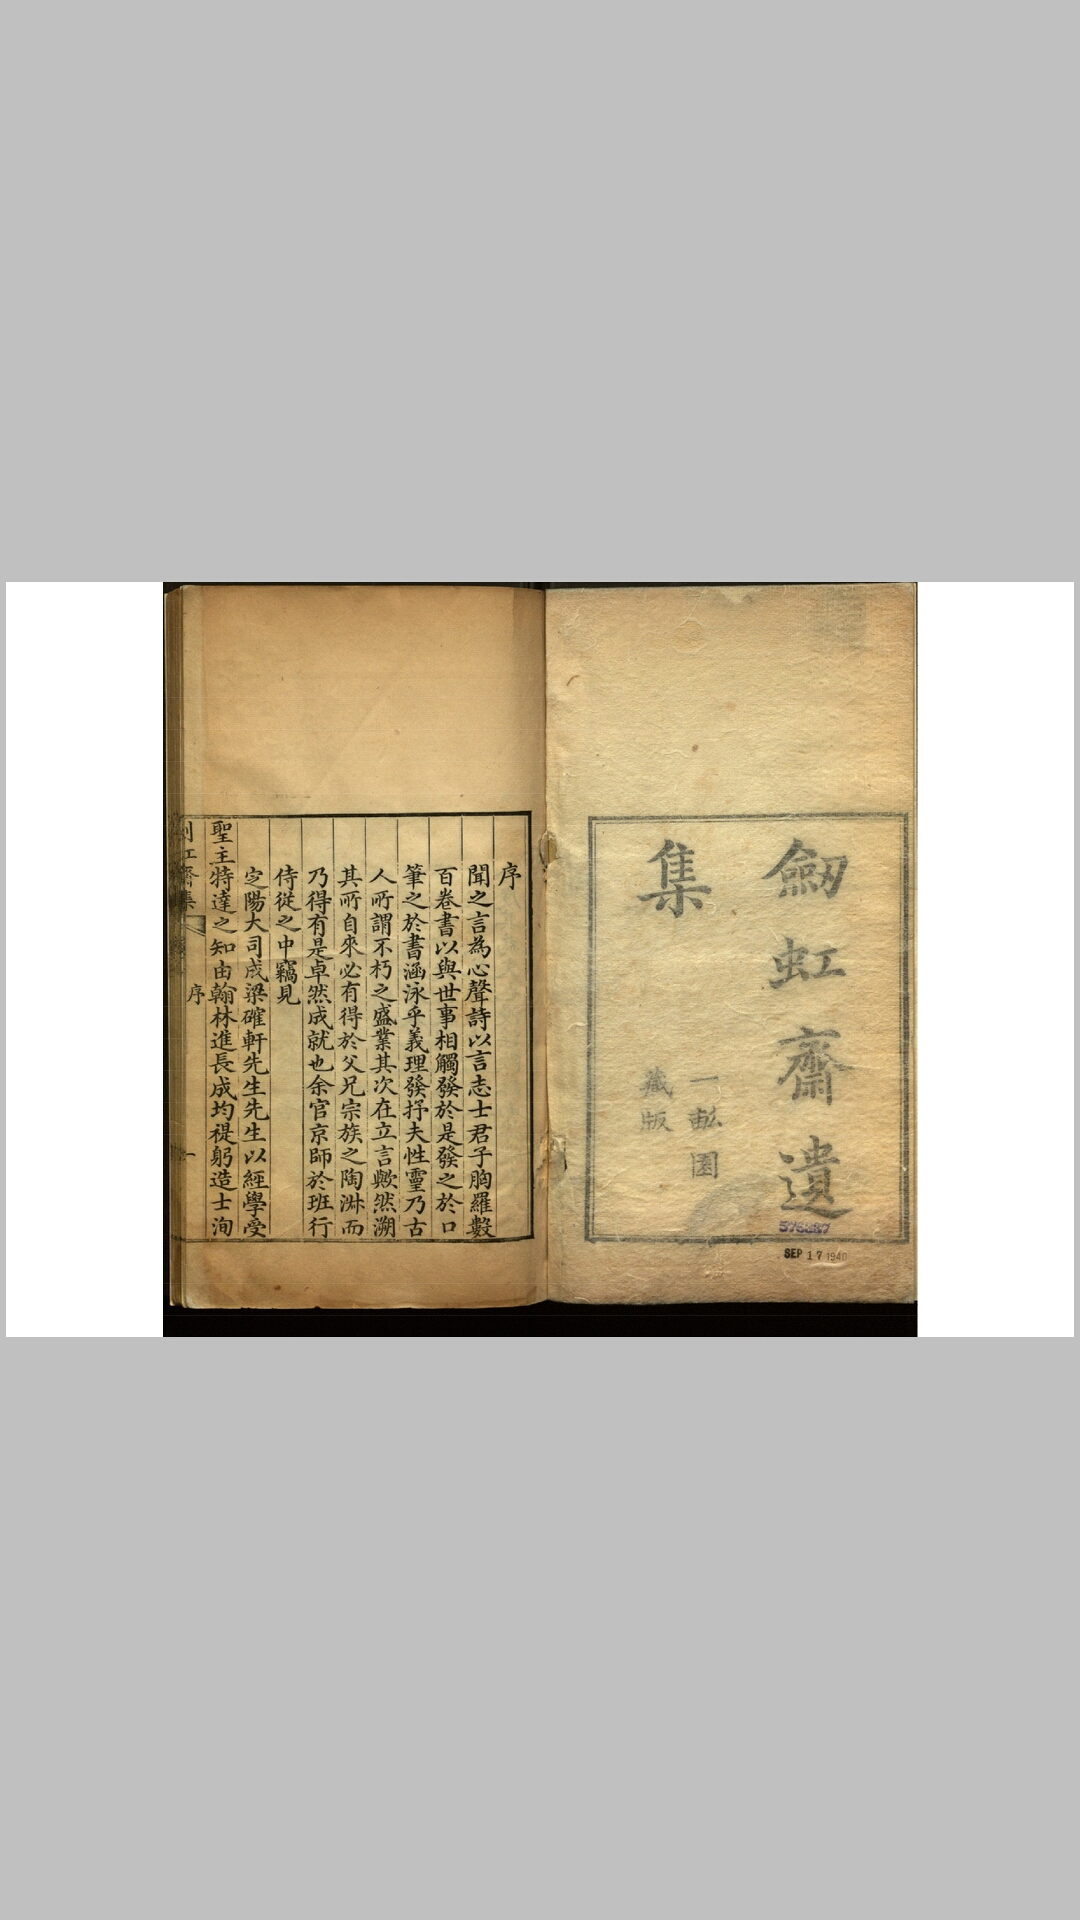 劒虹齋遺
集
一畝園
藏版
SEP 17 1940
序
聞之言為心聲詩以言志士君子胸羅數
百卷書以與世事相觸發於是發之於口
筆之於書涵泳乎義理發抒夫性靈乃古
人所謂不朽之盛業其次在立言歟然溯
其所自來必有得於父兄宗族之陶淑而
乃得有是卓然成就也余官京師於班行
侍從之中竊見
定陽大司成梁確軒先生先生以經學受
聖主特達之知由翰林進長成均禔躬造士洵
虹齋集
序
一